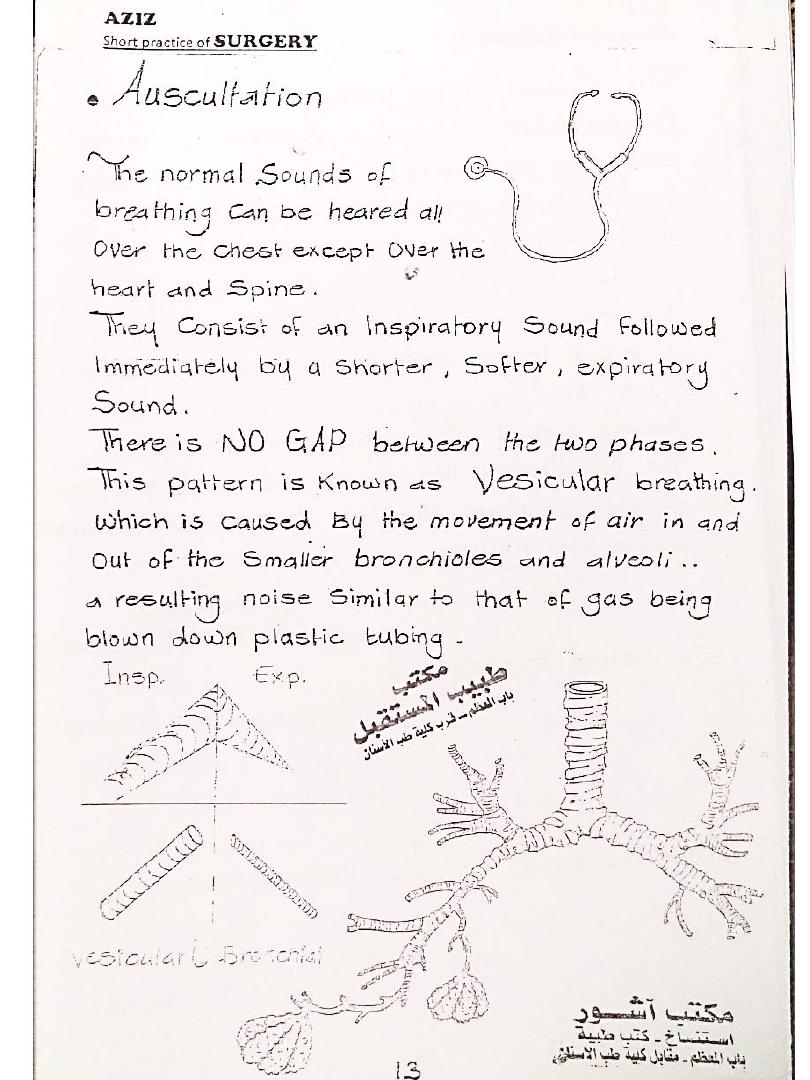 AZIZ
Short practice of SURGERY
• Auscultation
The normal Sounds of
breathing Can be heared all
Over the Chest except Over the
heart and Spine.
They Consist of an Inspiratory Sound Followed
Immediately by a Shorter, Softer, expiratory
Sound.
There is NO GAP between the two phases.
This pattern is Known as Vesicular breathing.
Which is Caused By the movement of air in and
Out of the Smaller bronchioles and alveoli..
a resulting noise Similar to that of gas being
blown down plastic tubing -
Insp. Exp.
مكتب
طبيب المستقبل
باب المعظم - قرب كلية طب الاسنان
Vesicular Bronchial
مكتب آشور
استنساخ - كتب طبية
باب المعظم - مقابل كلية طب الاسنان
13